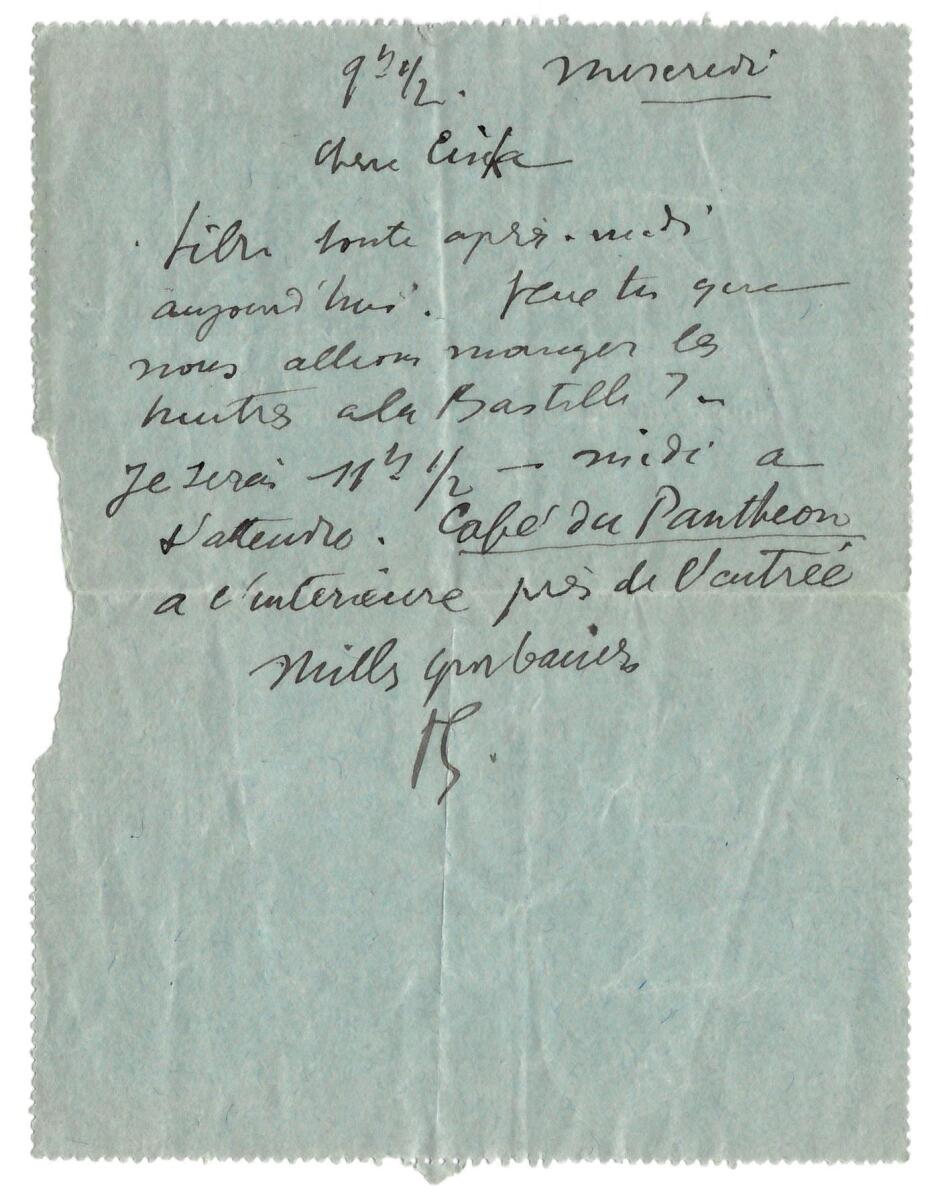 9h 1/2. Mercredi
Chere
Libre toute après-midi
aujourd'hui. Veux tu que
nous allions manger les
huitres a la Bastille ? -
Je serai 11h 1/2 - midi a
t'attendre. Café du Pantheon
a l'interieure près de l'entrée
Mills gros baisers